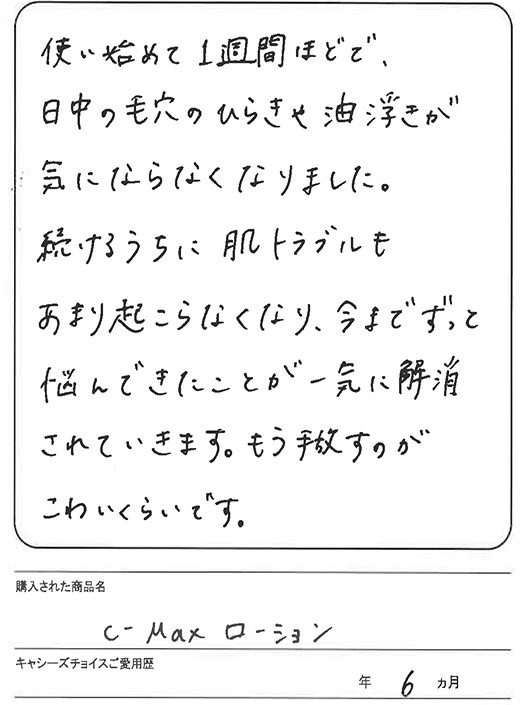 使い始めて1週間ほどで、
日中の毛穴のひらきや油浮きが
気にならなくなりました。
続けるうちに肌トラブルも
あまり起こらなくなり、今までずっと
悩んできたことが一気に解消
されていきます。もう手放すのが
こわいくらいです。
購入された商品名
C-Max ローション
キャシーズチョイスご愛用歴
年 6 ヵ月